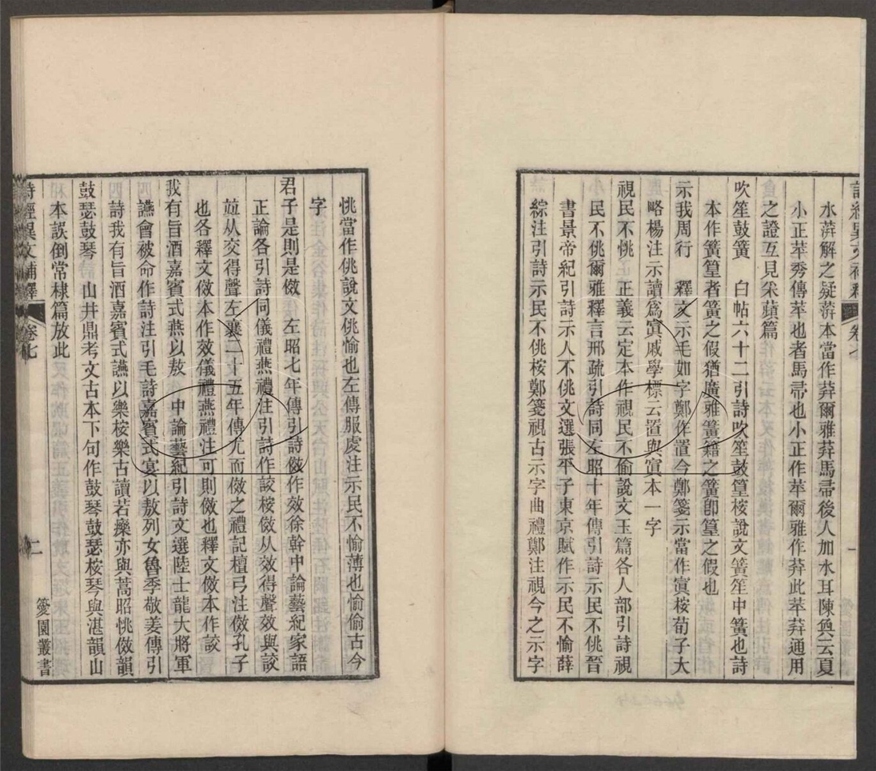 水蓱解之疑蓱本當作荓爾雅荓馬帚後人加水耳陳奐云夏
小正苹秀傳苹也者馬帚也小正作苹爾雅作荓此苹荓通用
之證互見采蘋篇
吹笙鼓簧　白帖六十二引詩吹笙鼓篁桉說文簧笙中簧也詩
本作簧篁者簧之假猶廣雅簧籍之簧卽篁之假也
示我周行　釋文示毛如字鄭作寘今鄭箋示當作寘桉荀子大
略楊注示讀爲寘戚學標云置與寘本一字
視民不恌　正義云定本作視民不偷說文玉篇各人部引詩視
民不佻爾雅釋言邢疏引詩同左昭十年傳引詩示民不佻晉
書景帝紀引詩示人不佻文選張平子東京賦作示民不愉薛
綜注引詩示民不佻桉鄭箋視古示字曲禮鄭注視今之示字
詩經異文補釋　卷七
恌當作佻說文佻愉也左傳服虔注示民不愉薄也愉偷古今
字
君子是則是傚　左昭七年傳引詩傚作效徐幹中論藝紀家語
正論各引詩同儀禮燕禮注引詩作詨桉傚从效得聲效與詨
竝从交得聲左襄二十五年傳尤而傚之禮記檀弓注傚孔子
也各釋文傚本作效儀禮燕禮注可則傚也釋文傚本作詨
我有旨酒嘉賓式燕以敖　中論藝紀引詩文選陸士龍大將軍
讌會被命作詩注引毛詩嘉賓式宴以敖列女魯季敬姜傳引
詩我有旨酒嘉賓式讌以樂桉樂古讀若㰂亦與蒿昭恌傚韻
鼓瑟鼓琴　山井鼎考文古本下句作鼓琴鼓瑟桉琴與湛韻山
本誤倒常棣篇放此
詩經異文補釋　卷七　二　䉵園叢書